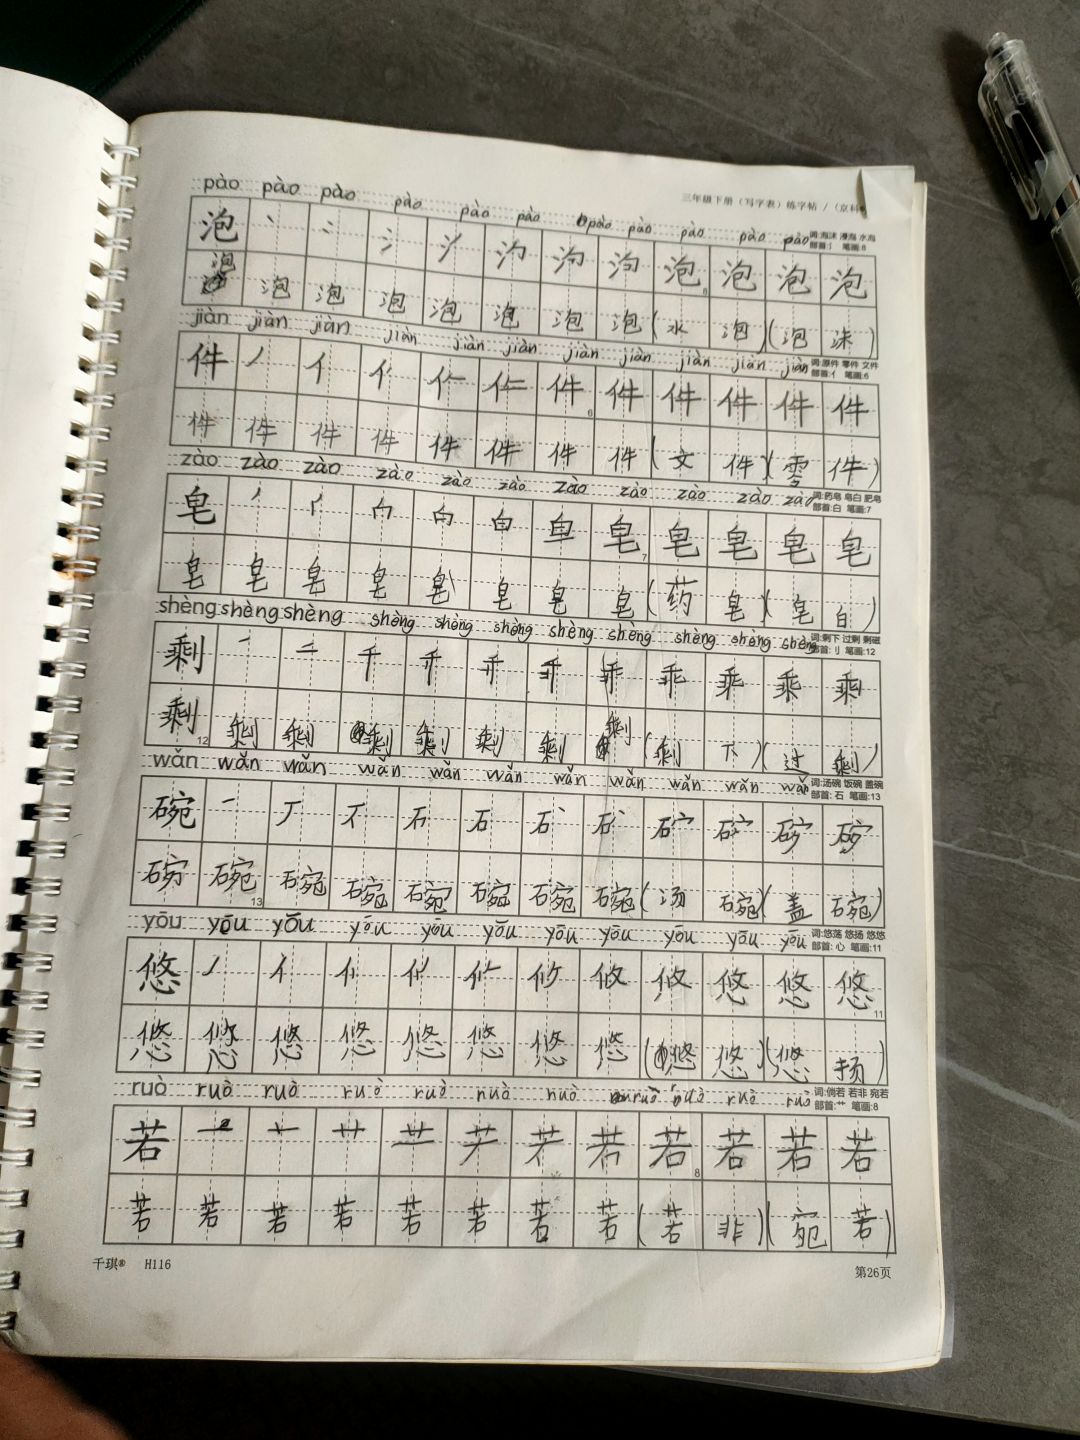 三年级下册（写字表）练字帖 /（京科
pào pào pào pào pào pào pào pào pào pào pào
词:泡沫 浸泡 水泡
部首:氵 笔画:8
泡 丶 泡 泡 泡 泡
泡 泡 泡 泡 泡 泡 泡 泡 (水 泡)(泡 沫)
jiàn jiàn jiàn jiàn jiàn jiàn jiàn jiàn jiàn jiàn jiàn
词:原件 零件 文件
部首:亻 笔画:6
件 丿 亻 件 件 件 件 件 件 件
件 件 件 件 件 件 件 件 (文 件)(零 件)
zào zào zào zào zào zào zào zào zào zào zào
词:药皂 皂白 肥皂
部首:白 笔画:7
皂 丿 白 皂 皂 皂 皂 皂
皂 皂 皂 皂 皂 皂 皂 皂 (药 皂)(皂 白)
shèng shèng shèng shèng shèng shèng shèng shèng shèng shèng shèng
词:剩下 过剩 剩磁
部首:刂 笔画:12
剩 一 二 千 乖 乘 乘 剩
剩 剩 剩 剩 剩 剩 剩 剩 (剩 下)(过 剩)
wǎn wǎn wǎn wǎn wǎn wǎn wǎn wǎn wǎn wǎn wǎn
词:汤碗 饭碗 盖碗
部首:石 笔画:13
碗 一 丆 石 石
碗 碗 碗 碗 碗 碗 碗 (汤 碗)(盖 碗)
yōu yōu yōu yōu yōu yōu yōu yōu yōu yōu yōu
词:悠荡 悠扬 悠悠
部首:心 笔画:11
悠 丿 亻 攸 攸 悠 悠 悠
悠 悠 悠 悠 悠 悠 悠 悠 (悠 悠)(悠 扬)
ruò ruò ruò ruò ruò ruò ruò ruò ruò ruò ruò
词:倘若 若非 宛若
部首:艹 笔画:8
若 一 十 艹 若 若 若 若 若
若 若 若 若 若 若 若 若 (若 非)(宛 若)
千琪® H116
第26页